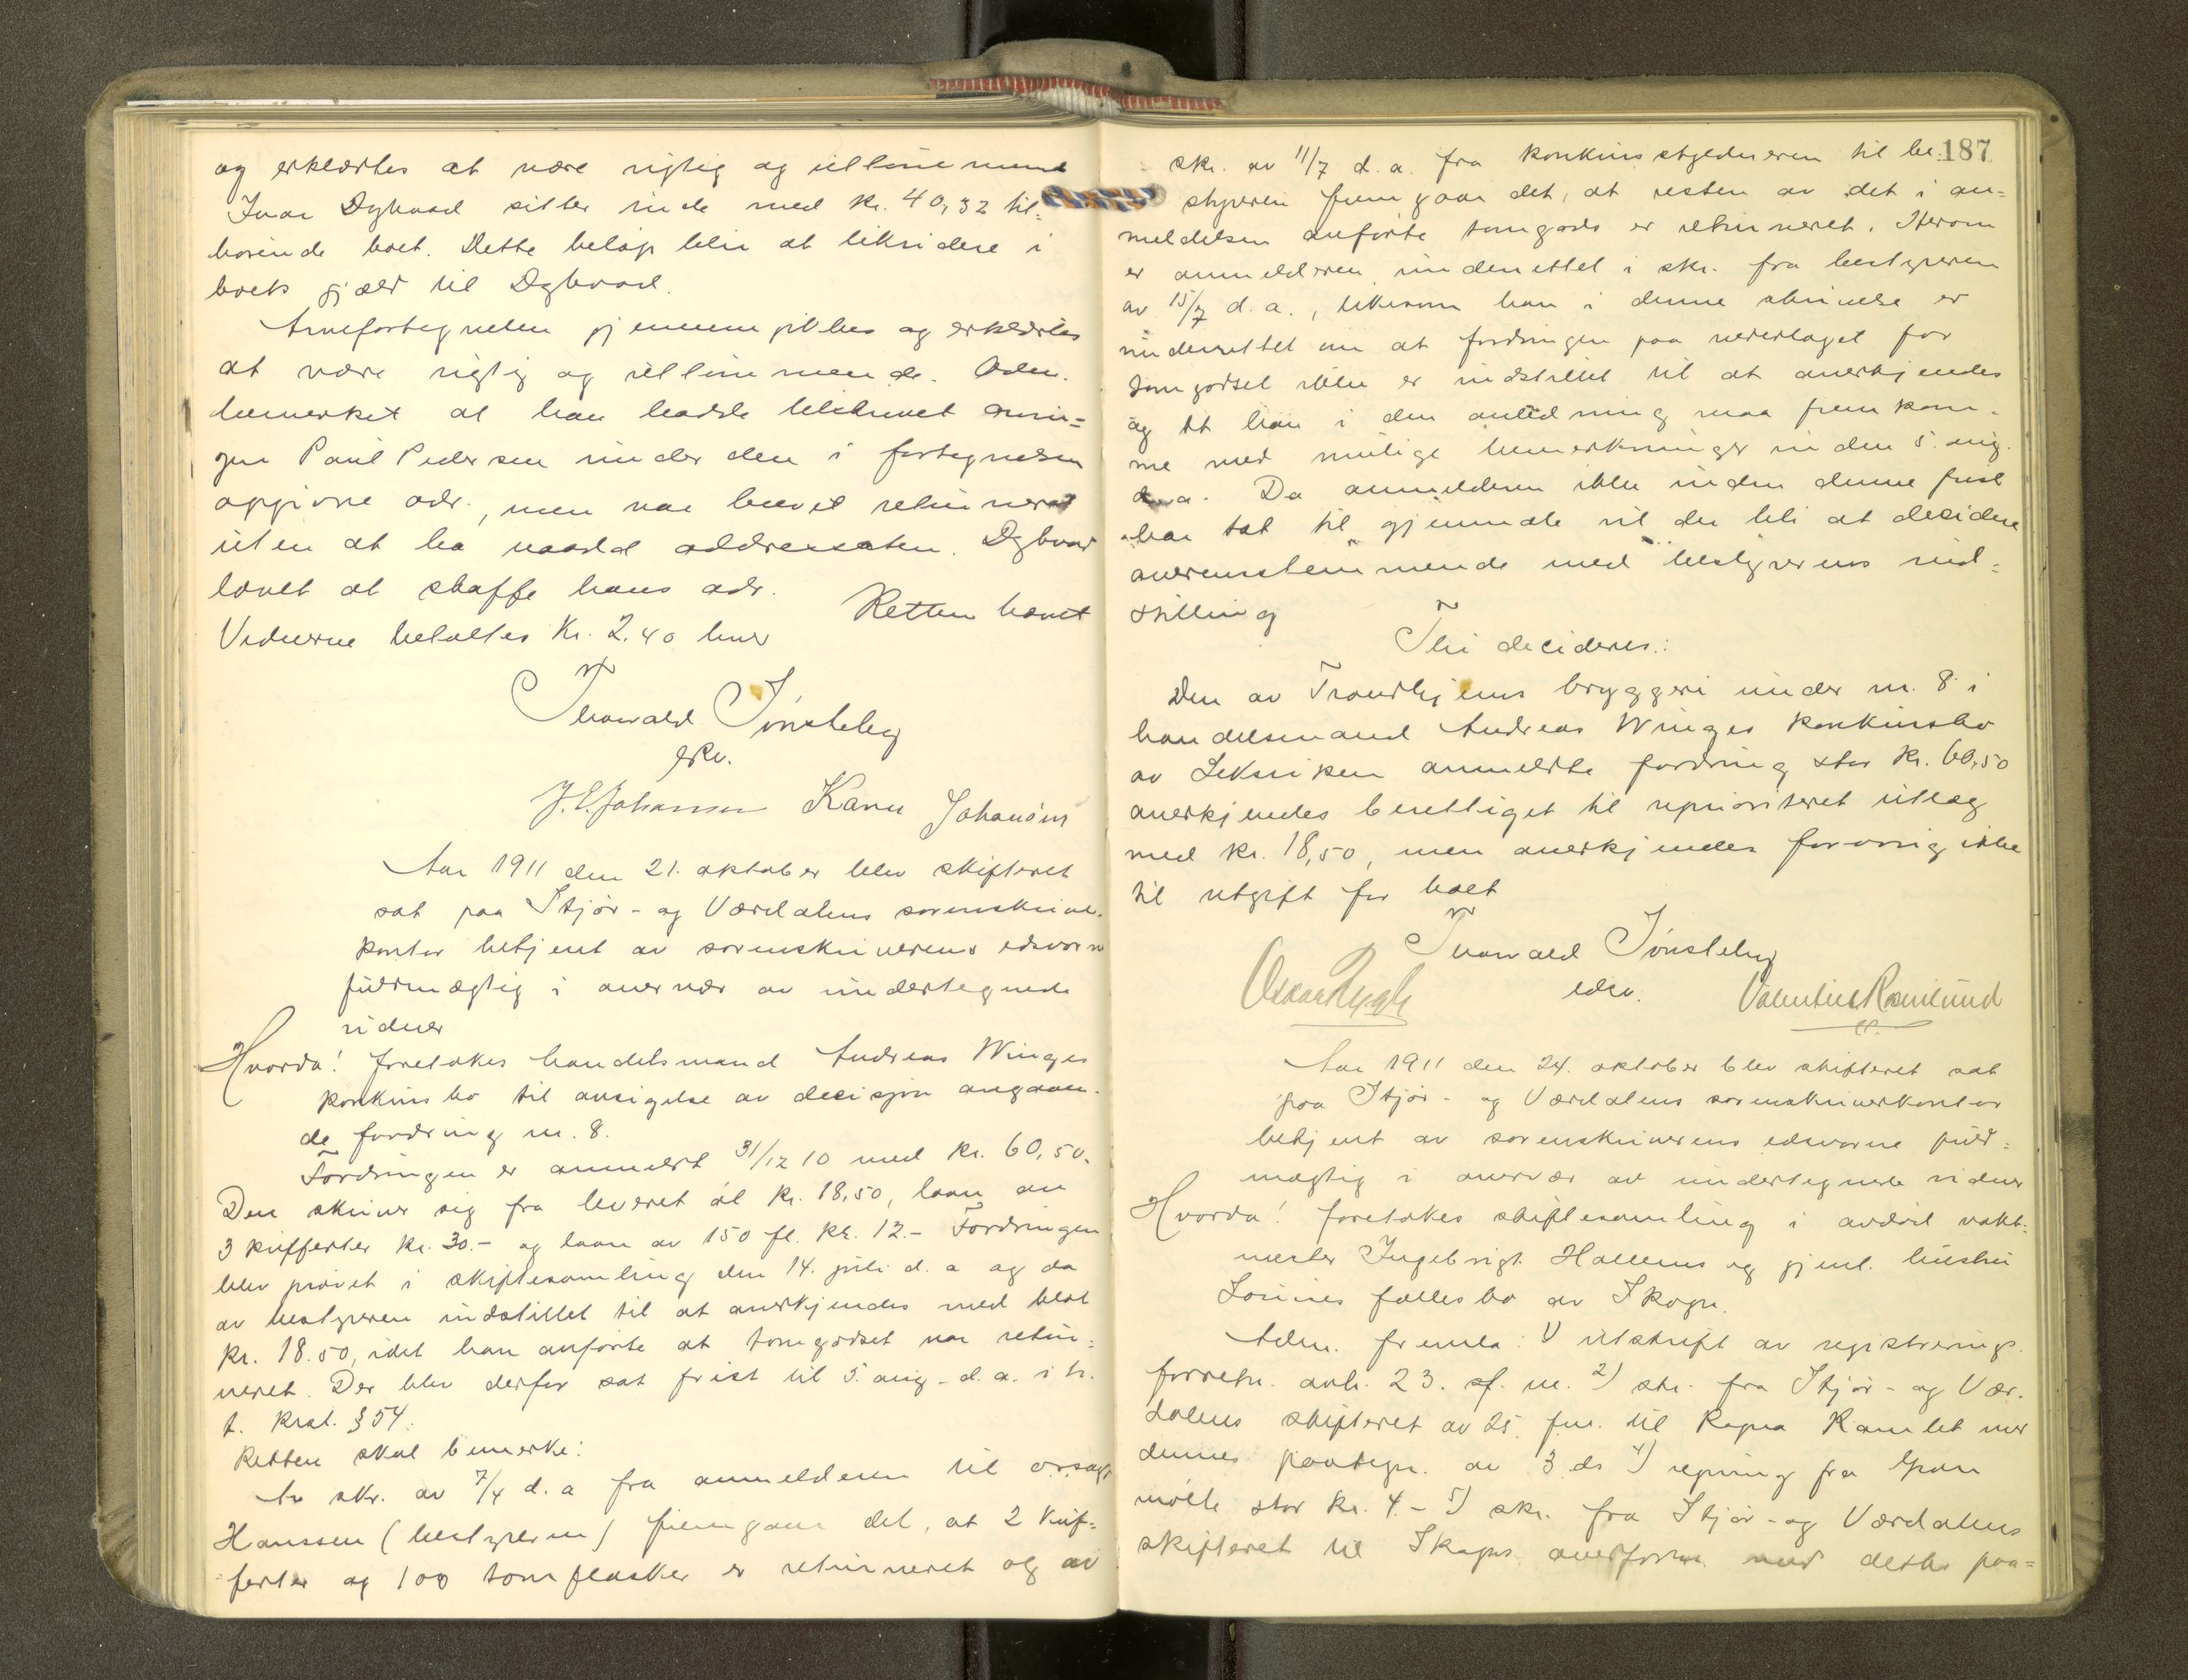 og erklærtes at være rigtig og utømmende
Ivar Dybvad sitter inde med kr. 40,32 til=
hørende boet. Dette beløp blir at likvidere i
boets gjæld til Dybvad.
Arvefortegnelsen gjennemgikkes og erklærtes
at være rigtig og uttømmende. Adm.
bemerket at han hadde tilskrevet arvin=
gen Paul Pedersen under den i fortegnelsen
opgivne adr., men var brevet returneret
uten at ha naadd addressaten. Dybvad
lovet at skaffe hans adr.
Retten hævet
Vidnerne betaltes Kr. 2,40 hver
Thorvald Tønseberg
edsv.
J. E. Johansen Karen Johansen
Aar 1911 den 21. oktober blev skifteret
sat paa Stjør- og Værdalens sorenskriver-
kontor betjent av sorenskriverens edsvorne
fuldmægtig i overvær av undertegnede
vidner
Hvorda! foretokes handelsmand Andreas Winges
konkursbo til avsigelse av decisjon angaaen-
de fordring nr. 8.
Fordringen er anmeldt 31/12 10 med kr. 60,50.
Den skriver sig fra leveret øl kr. 18,50, laan av
3 kufferter kr. 30.- og laan av 150 fl. kr. 12.- Fordringen
blev prøvet i skiftesamling den 14. juli d.a. og da
av bestyreren indstillet til at anerkjendes med blot
kr. 18.50, idet han anførte at tomgodset var retur=
neret. Der blev derfor sat frist til 5. aug. d.a. i h.
t. Krsl. § 54.
Retten skal bemerke:
Av skr. av 7/4 d.a. fra anmelderen til orsagf.
Hanssen (bestyreren) fremgaar det, at 2 kuf=
ferter og 100 tomflasker er returneret og av
187
skr. av 11/7 d.a. fra konkursskyldneren til be=
styreren fremgaar det, at resten av det i an=
meldelsen anførte tomgods er returneret. Herom
er anmelderen underrettet i skr. fra bestyreren
av 15/7 d.a., likesom han i denne skrivelse er
underrettet om at fordringen paa vederlaget for
tomgodset ikke er indstillet til at anerkjendes
og at han i den anledning maa fremkom-
me med mulige bemerkninger inden 5. aug.
d.a. Da anmelderen ikke inden denne frist
har tat til gjenmæle vil der bli at decidere
overensstemmende med bestyrerens ind=
stilling
Thi decideres:
Den av Trondhjems bryggeri under nr. 8 i
handelsmand Andreas Winges konkursbo
av Leksviken anmeldte fordring stor kr. 60,50
anerkjendes berettiget til uprioriteret utlæg
med kr. 18,50, men anerkjendes forøvrig ikke
til utgift for boet
Thorvald Tønseberg
edsv.
Oskar Rygh Valentin Romlund
Aar 1911 den 24. oktober blev skifteret sat
paa Stjør- og Værdalens sorenskriverkontor
betjent av sorenskriverens edsvorne fuld=
mægtig i overvær av undertegnede vidner
Hvorda! foretokes skiftesamling i avdød vakt=
mester Ingebrigt Hallems og gjenl. hustru
fællesbo av Skogn.
Adm. fremla: 1) utskrift av registrerings-
forretn. avh. 23. sf. m. 2) skr. fra Stjør- og Vær-
dalens skifteret av 25. fm. til Ragna Ramlet med
dennes paategn. av 3. ds 4) regning fra Gran
stor kr. 4.- 5) skr. fra Stjør- og Værdalens
skifteret til Skogns overform. med dettes paa=